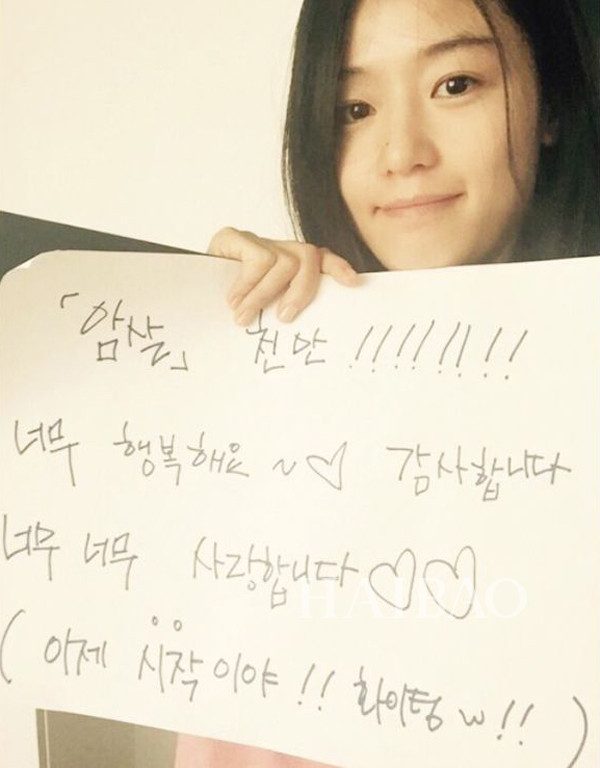 「암살」 천만 !!!!!!!!
너무 행복해요 ~♡ 감사합니다
너무 너무 사랑합니다♡♡
HAIBAO
( 아제 시작이야 !! 화이팅 w !! )